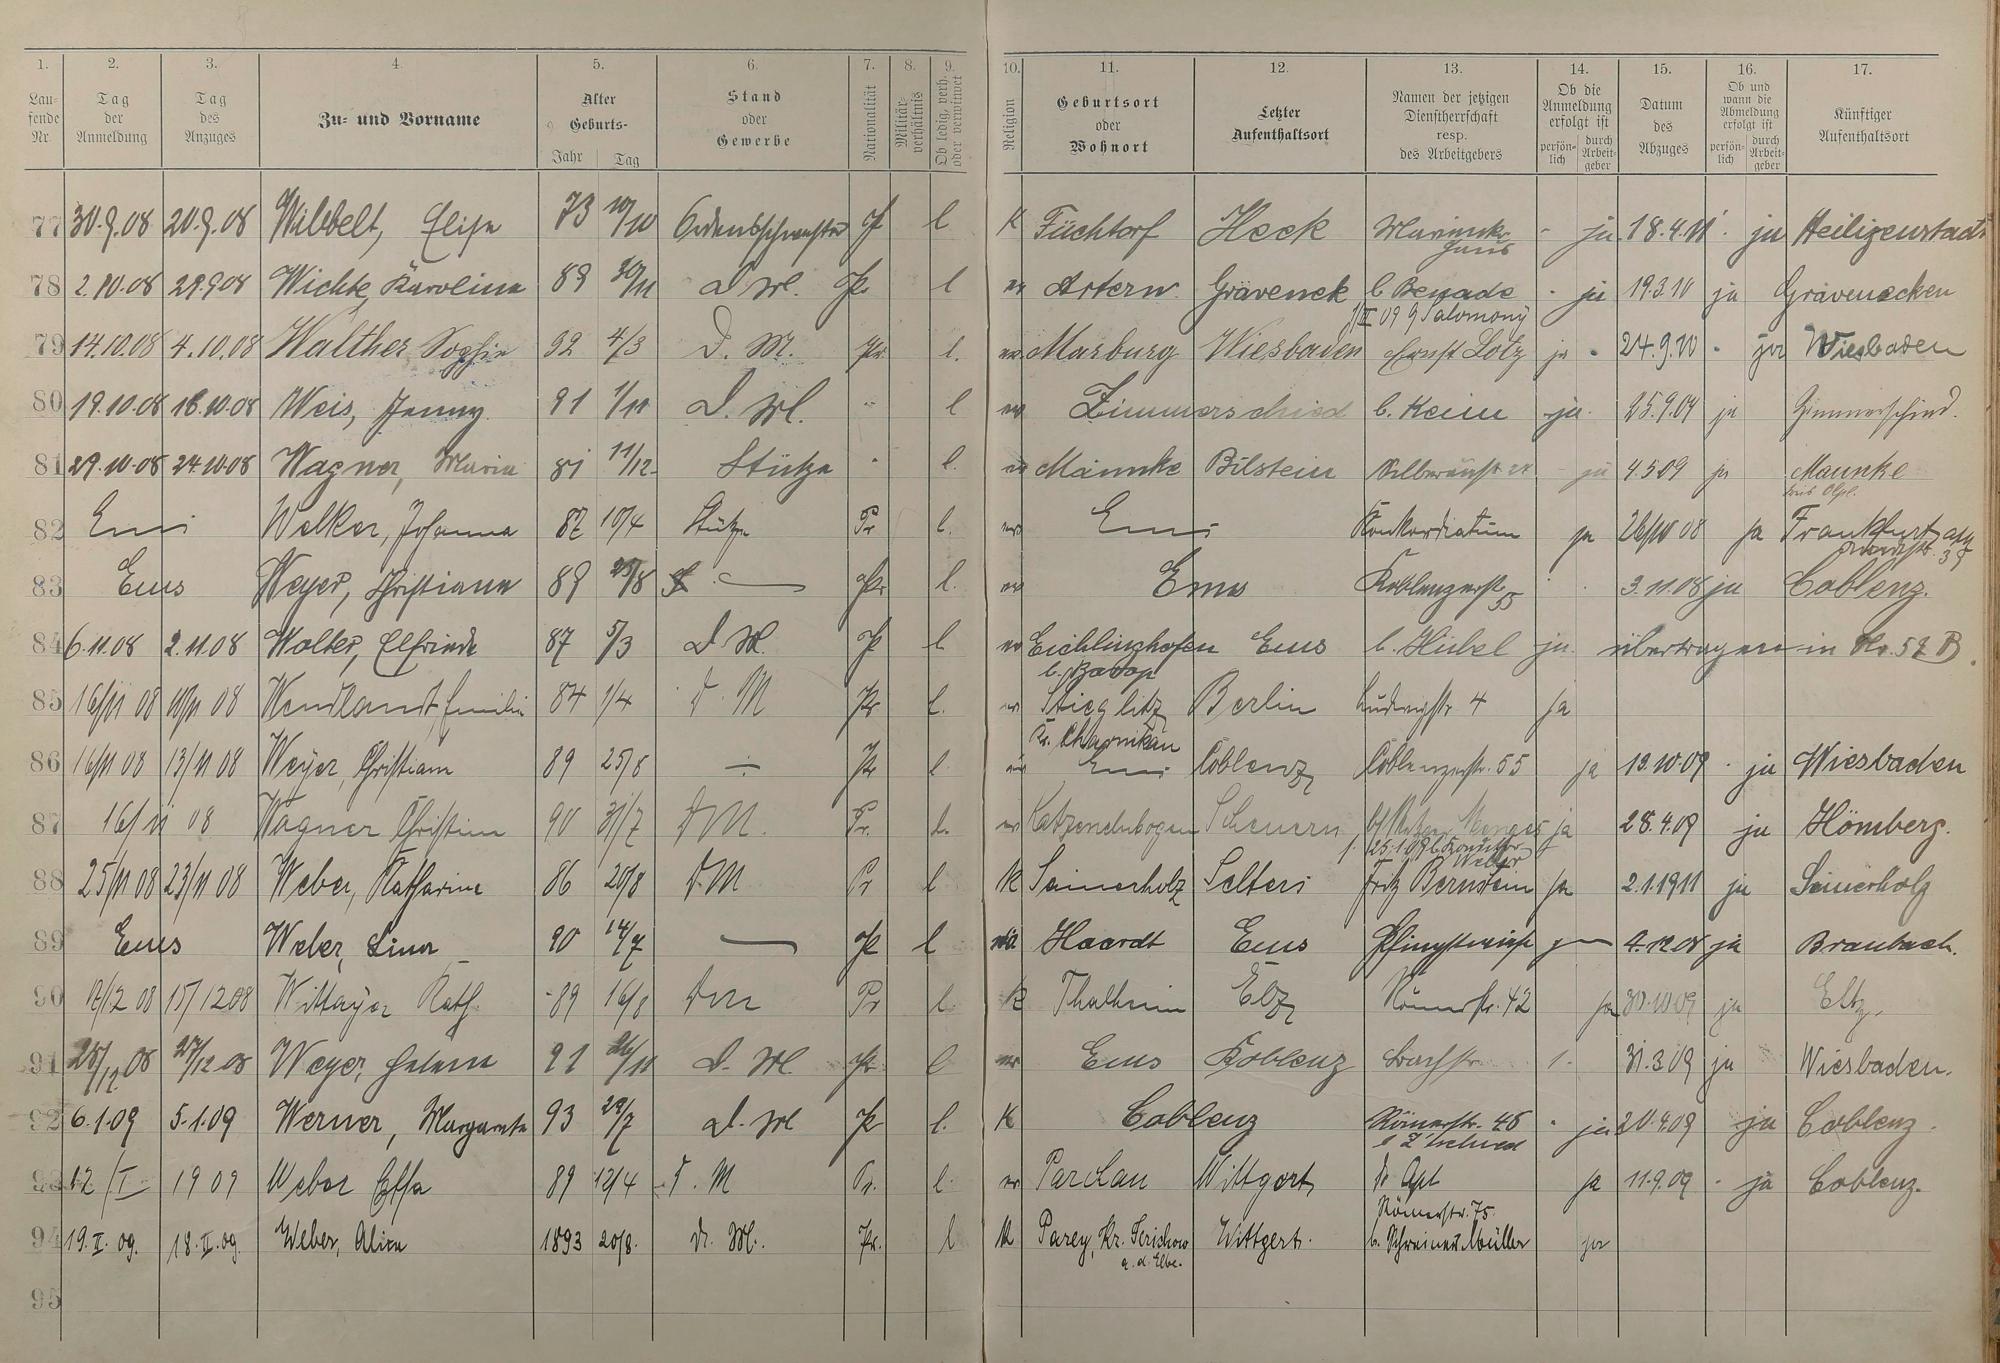 1. 2. 3. 4. 5. 6. 7. 8. 9. 10. 11. 12. 13. 14. 15. 16. 17.
Laufende Nr. Tag der Anmeldung Tag des Anzuges Zu- und Vorname Alter Geburts- Jahr Tag Stand oder Gewerbe Nationalität Militärverhältnis Ob ledig, verh. oder verwitwet Religion Geburtsort oder Wohnort Letzter Aufenthaltsort Namen der jetzigen Dienstherrschaft resp. des Arbeitgebers Ob die Anmeldung erfolgt ist persönlich durch Arbeitgeber Datum des Abzuges Ob und wann die Abmeldung erfolgt ist persönlich durch Arbeitgeber Künftiger Aufenthaltsort
77 30.9.08 20.9.08 Wibbelt, Elise 73 10/10 Ordensschwester l K Füchtorf Heck Marienkr. haus - ja 18.4.11 ja Heiligenstadt
78 2.10.08 29.9.08 Wichte, Karoline 89 D. M. Pr. l ev Artern Gräveneck b. Benade - ja 19.3.10 ja Gräveneck
79 14.10.08 4.10.08 Walther Sophie 92 4/3 D. M. Pr l. ev. Marburg Wiesbaden Ernst Lotz ja - 24.9.10 - ja Wiesbaden
80 19.10.08 16.10.08 Weis, Jenny 91 1/11 D. M. " l ev Zimmerschied b. Keim ja 25.9.09 ja Zimmerschied.
81 29.10.08 24.10.08 Wagner, Maria 81 11/12 Stütze " l. ev Männke Bilstein ja 4.5.09 ja Maunke
82 Ems Welker, Johanna 87 10/4 Stütze Pr l. ev Ems Konkordiatum ja 26/10 08 ja Frankfurt a/M
83 Ems Weyer, Christiane 89 25/8 — Pr l. ev Ems Koblenzerstr. 55 3.11.08 ja Coblenz.
84 6.11.08 2.11.08 Wolter, Elfriede 87 5/3 D. M. Pr l. ev Eichlinghofen b. Barop Ems b. Hübel ja übertragen in No. 52 B.
85 16/11 08 10/11 08 Wendlandt, Emilie 84 1/4 D. M Pr l. ev Stieglitz Kr. Czarnikau Berlin Ludwigstr 4 ja
86 16/11 08 13/11 08 Weyer, Christiane 89 25/8 — Pr l. ev Ems Coblenz Coblenzerstr. 55 ja 13.10.09 - ja Wiesbaden
87 16/11 08 Wagner Christine 90 31/7 D M. Pr. l. ev Katzenelnbogen Scheuern ja 28.4.09 ja Hömberg.
88 25/11 08 23/11 08 Weber, Katharine 86 20/8 D. M Pr l K Sainerholz Selters Fritz Bernstein ja 2.1.1911 ja Sainerholz
89 Ems Weber, Lina 90 14/7 — Pr l Haardt Ems Pfingstwiese 4.12.08 ja Braubach.
90 15/12 08 Wittayer Kath. 89 16/8 D M Pr l. K Thalheim Elz Römerstr. 42 ja 30.10.09 ja Eltz.
91 28/12 08 27/12 08 Weyer, Helene 91 26/11 D. M Pr l ev Ems Koblenz Bachstr. 1. 31.3.09 ja Wiesbaden.
92 6.1.09 5.1.09 Werner, Margarete 93 29/7 D. M Pr l. K Coblenz Römerstr. 48 - ja 20.4.09 ja Coblenz.
93 12/I 1909 Weber Elsa 89 12/4 D. M Pr. l. ev Parchau Wittgert ja 11.9.09 - ja Coblenz.
94 19.II.09. 18.II.09. Weber, Alice 1893 20/8. D. M. Pr. l K Parey, Kr. Jerichow a. d. Elbe. Wittgert. Römerstr. 75. b. Schreiner Müller ja
95